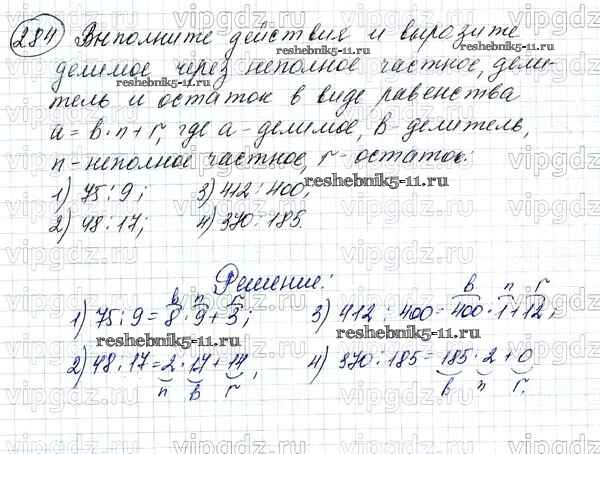 284 Выполните действия и выразите
делимое через неполное частное, дели-
тель и остаток в виде равенства
a = b · n + r, где a - делимое, b - делитель,
n - неполное частное, r - остаток:
1) 75 : 9; 3) 412 : 400;
2) 48 : 17; 4) 370 : 185.
Решение:
b n r b n r
1) 75 : 9 = 8 · 9 + 3; 3) 412 : 400 = 400 · 1 + 12;
2) 48 : 17 = 2 · 17 + 14, 4) 370 : 185 = 185 · 2 + 0
n b r b n r.
vipgdz.ru
reshebnik5-11.ru